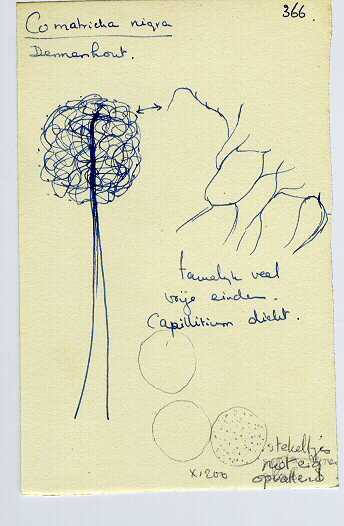 366.
Comatricha nigra
Dennenhout.
tamelijk veel
vrije einden.
Capillitium dicht.
stekeltjes
niet erg
opvallend
x1200